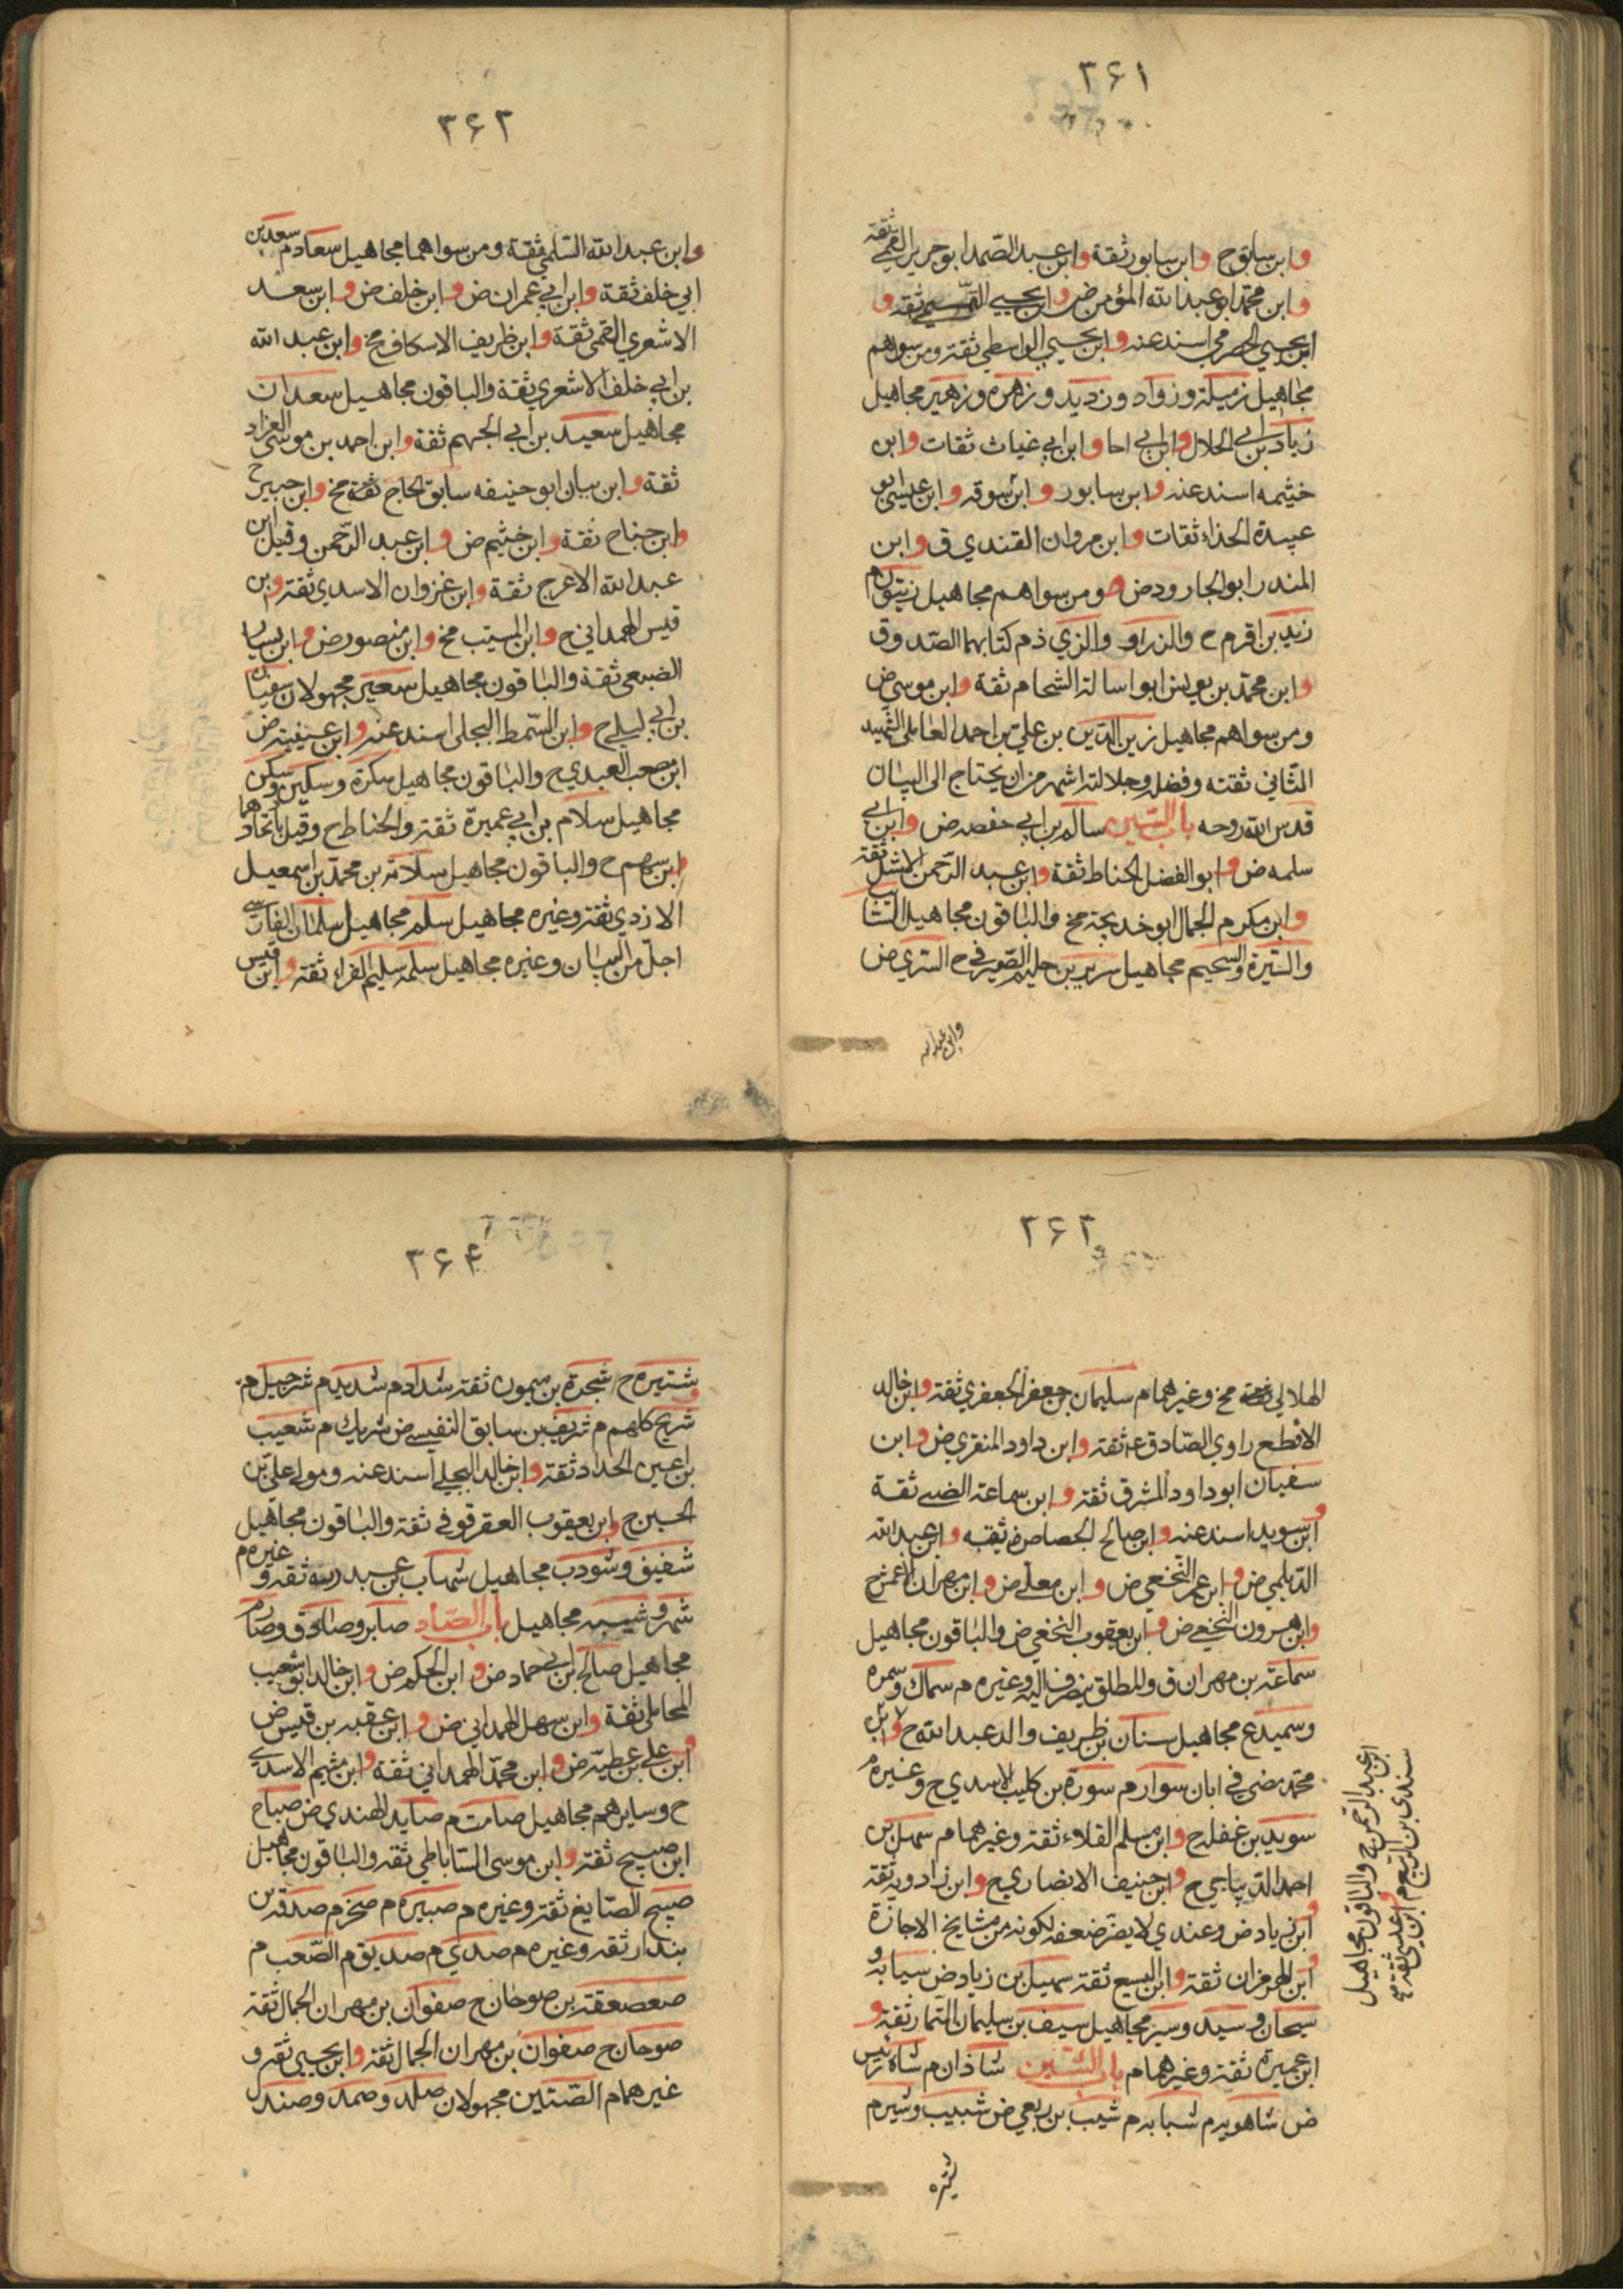 ۳۶۱
وابن سابق ح وابن سابور ثقة وابن عبد الصّمد ابو جرير القمّي ثقة
وابن محمّد ابو عبد الله المؤمن ض وابن يحيى التّميمي ثقه و
ابن يحيى الحضرمي اسند عنه وابن يحيى الواسطي ثقة ومن سواهم
مجاهيل زميلة وزواد وزديد وزهرة وزهير مجاهيل
زياد بن ابي الحلال وابن ابي احا وابن ابي غياث ثقات وابن
خثيمه اسند عنه وابن سابور وابن سوقه وابن عيسى ابو
عبيدة الحذاء ثقات وابن مروان القندي ق وابن
المنذر ابو الجارود ض ومن سواهم مجاهيل زيتون م
زيد بن اقرم ح والزراد والنرسي ذم كتابهما الصّدوق
وابن محمّد بن يونس ابو اسامة الشحام ثقة وابن موسى ض
ومن سواهم مجاهيل زين الدّين بن علي بن احمد العاملي الشهيد
الثّاني ثقته وفضله وجلالته اشهر من ان يحتاج الى البيان
قدس الله روحه باب السّين سالم بن ابي حفصه ض وابن ابي
سلمه ض وابو الفضل الحناط ثقة وابن عبد الرّحمن الاشل ثقة
وابن مكرم الجمال ابو خديجة مخ والباقون مجاهيل السّائب
والسّبرة والسّحيم مجاهيل سرير بن حليم الصّيرفي ح السّري ض
وابن عبد الله
۳۶۲
وابن عبد الله السّلمي ثقة ومن سواهما مجاهيل سعاد م سعد بن
ابي خلف ثقة وابن ابي عمران ض وابن خلف ض وابن سعد
الاشعري القمّي ثقة وابن ظريف الاسكاف مخ وابن عبد الله
بن ابي خلف الاشعري ثقة والباقون مجاهيل سعدان
مجاهيل سعيد بن ابي الجهم ثقة وابن احمد بن موسى العزاد
ثقة وابن بيان ابو حنيفه سابق الحاج ثقة مخ وابن جبير ح
وابن جناح ثقة وابن خثيم ض وابن عبد الرّحمن وقيل ابن
عبد الله الاعرج ثقة وابن غزوان الاسدي ثقة وبن
قيس الهمداني ح وابن المسيّب مخ وابن منصور ض وابن يسار
الضبعي ثقة والباقون مجاهيل سعير مجهولان سفيان
بن ابي ليلى ح وابن السّمط البجلي اسند عنه وابن عيينة ض
ابن مصعب العبدي ح والباقون مجاهيل سكرة وسكين وسكن
مجاهيل سلام بن ابي عميرة ثقة والحناط ح وقيل باتحادهما
وابن سهم ح والباقون مجاهيل سلامة بن محمّد بن اسمعيل
الازدي ثقة وغيره مجاهيل سلم مجاهيل سلمان الفارسي
اجلّ من البيان وغيره مجاهيل سلمه سليم الفراء ثقة وابن قيس
۳۶۳
الهلالي ثقة مخ وغيرهما م سليمان بن جعفر الجعفري ثقة وابن خالد
الاقطع راوي الصّادق ع ثقة وابن داود المنقري ض وابن
سفيان ابو داود المشرق ثقة وابن سماعة الضبي ثقة
وابن سويد اسند عنه وابن صالح الجصاص ثقه وابن عبد الله
الدّيلمي ض وابن عمر النّخعي ض وابن معلى ض وابن مهران الاعمش ح
وابن هرون النّخعي ض وابن يعقوب النخعي ض والباقون مجاهيل
سماعة بن مهران ق والمطلق ينصرف اليه وغيره م سماك وسمره
وسميدع مجاهيل سنان بن ظريف والد عبد الله ح ولابن
محمّد مضى في ابان سوار م سورة بن كليب الاسدي ح وغيره م
سويد بن غفلة ح وابن مسلم القلاء ثقة وغيرهما م سهل بن
احمد الدّيباجي ح وابن حنيف الانصاري ح وابن زادويه ثقة
وابن زياد ض وعندي لا يضرّ ضعفه لكونه من مشايخ الاجازة
وابن الهرمزان ثقة وابن اليسع ثقة سهيل بن زياد ض سيابه و
سيحان وسيد وسير مجاهيل سيف بن سليمان التّمار ثقة و
ابن عميرة ثقة وغيرهما م باب الشّين شاذان م شاه رئيس
ض شاهويه م شبابه م شبث بن ربعي ض شبيب وشير م
شتيره
سندي بن الرّبيع م وابن عيسى ثقة صح
ابن عبد الرّحمن ح والباقون مجاهيل
۳۶۴
شتيره ح شجرة بن ميمون ثقة شداد م شديد م شرحبيل م
وشريح كلهم م شريف بن سابق التفليسي ض شريك م شعيب
بن اعين الحداد ثقة وابن خالد البجلي اسند عنه ومولى علي بن
الحسين ح وابن يعقوب العقرقوفي ثقة والباقون مجاهيل
شفيق وشوذب مجاهيل شهاب بن عبد ربه ثقه وغيره م
شمر وشيبه مجاهيل باب الصّاد صابر وصادق وصارم
مجاهيل صالح بن ابي حماد ض وابن الحكم ض وابن خالد ابو شعيب
المحاملي ثقة وابن سهل الهمداني ض وابن عقبه بن قيس ض
وابن علي بن عطيّه ض وابن محمّد الهمداني ثقة وابن ميثم الاسدي
ح وسايرهم مجاهيل صامت م صايد الهندي ض صباح
ابن صبيح ثقة وابن موسى السّاباطي ثقة والباقون مجاهيل
صبيح الصّايغ ثقة وغيره م صبيره م صخر م صدقه بن
بندار ثقه وغيره م صدي م صديق م الصّعب م
صعصعة بن صوحان ح صفوان بن مهران الجمال ثقة
صوحان ح صفوان بن مهران الجمال ثقة وابن يحيى ثقة و
غيرهما م الصّتين مجهولان صلد وصمد وصندل